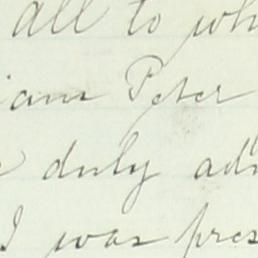 all to wh
iam Peter
duly ad
I was pres